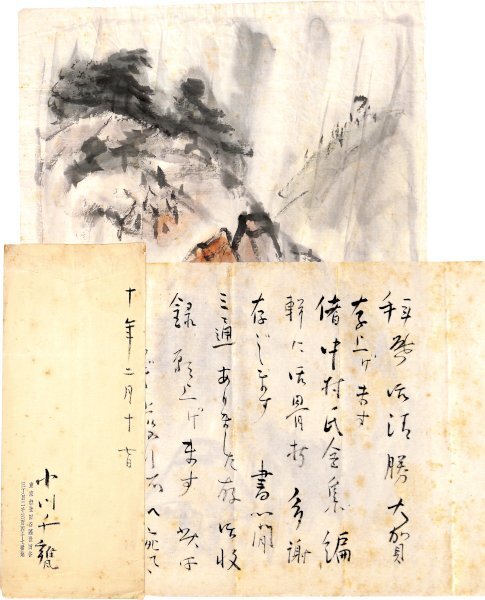 拝啓 御清勝大賀
存上げます
偖中村氏全集編
輯に御骨折多謝
存じます 書簡
三通ありました故御收
録願上げます
十年二月十
小川千甕
東京市世田谷區世田谷